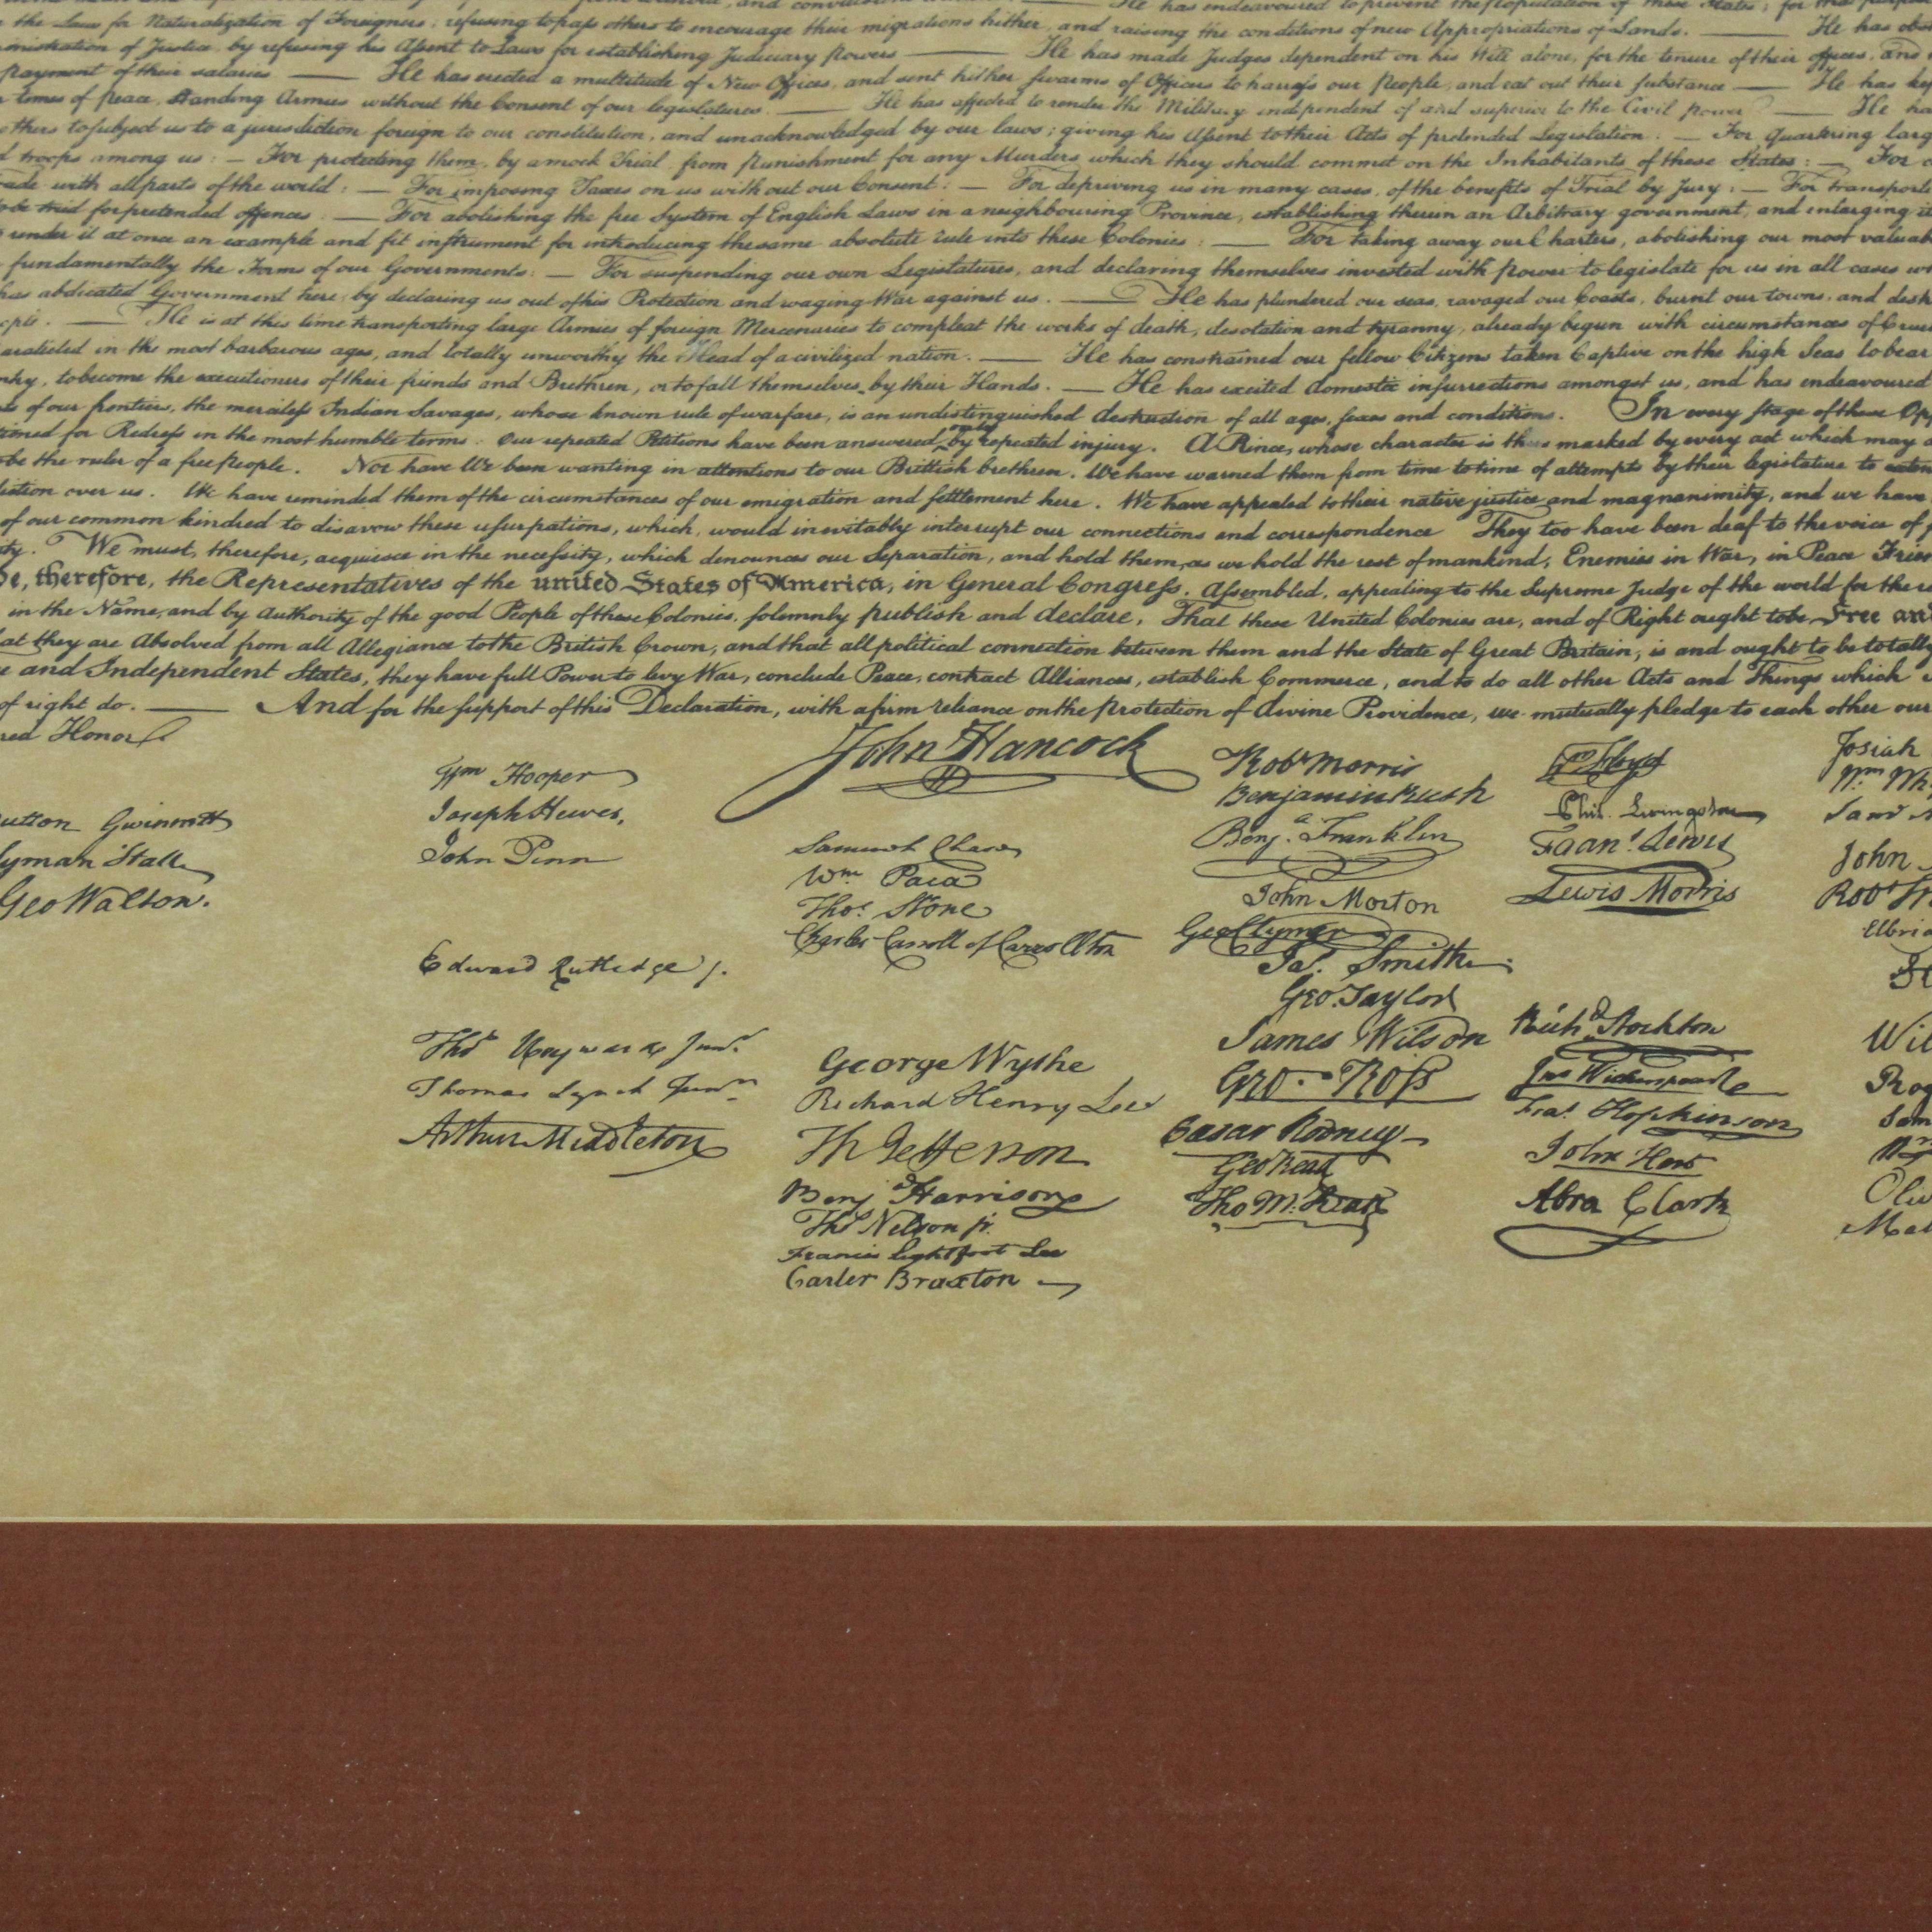 the Laws for Naturalization of Foreigners; refusing to pass others to encourage their migrations hither, and raising the conditions of new Appropriations of Lands. — He has
of Justice, by refusing his Assent to Laws for establishing Judiciary Powers — He has made Judges dependent on his Will alone, for the tenure of their offices, and
payment of their salaries — He has erected a multitude of New Offices, and sent hither swarms of Officers to harrass our People, and eat out their substance — He has
times of peace, Standing Armies without the Consent of our legislatures. — He has affected to render the Military independent of and superior to the Civil power — He
others to subject us to a jurisdiction foreign to our constitution, and unacknowledged by our laws; giving his Assent to their Acts of pretended Legislation. — For quartering
troops among us: — For protecting them, by a mock Trial from punishment for any Murders which they should commit on the Inhabitants of these States: — For
with all parts of the world: — For imposing Taxes on us without our Consent: — For depriving us in many cases, of the benefits of Trial by Jury: — For
to be tried for pretended offences — For abolishing the free System of English Laws in a neighbouring Province, establishing therein an Arbitrary government, and enlarging
render it at once an example and fit instrument for introducing the same absolute rule into these Colonies: — For taking away our Charters, abolishing our most
fundamentally the Forms of our Governments: — For suspending our own Legislatures, and declaring themselves invested with power to legislate for us in all cases
has abdicated Government here, by declaring us out of his Protection and waging War against us. — He has plundered our seas, ravaged our Coasts, burnt our towns, and
He is at this time transporting large Armies of foreign Mercenaries to compleat the works of death, desolation and tyranny, already begun with circumstances of
in the most barbarous ages, and totally unworthy the Head of a civilized nation. — He has constrained our fellow Citizens taken Captive on the high Seas to bear
to become the executioners of their friends and Brethren, or to fall themselves by their Hands. — He has excited domestic insurrections amongst us, and has endeavoured
of our frontiers, the merciless Indian Savages, whose known rule of warfare, is an undistinguished destruction of all ages, sexes and conditions. In every stage of these
for Redress in the most humble terms: Our repeated Petitions have been answered only by repeated injury. A Prince, whose character is thus marked by every act which may
be the ruler of a free people. Nor have We been wanting in attentions to our Brittish brethren. We have warned them from time to time of attempts by their legislature to
over us. We have reminded them of the circumstances of our emigration and settlement here. We have appealed to their native justice and magnanimity, and we have
of our common kindred to disavow these usurpations, which, would inevitably interrupt our connections and correspondence They too have been deaf to the voice of
We must, therefore, acquiesce in the necessity, which denounces our Separation, and hold them, as we hold the rest of mankind, Enemies in War, in Peace
therefore, the Representatives of the united States of America, in General Congress, Assembled, appealing to the Supreme Judge of the world for the
in the Name, and by Authority of the good People of these Colonies, solemnly publish and declare, That these United Colonies are, and of Right ought to be Free
they are Absolved from all Allegiance to the British Crown, and that all political connection between them and the State of Great Britain, is and ought to be totally
and Independent States, they have full Power to levy War, conclude Peace, contract Alliances, establish Commerce, and to do all other Acts and Things which
of right do. — And for the support of this Declaration, with a firm reliance on the protection of divine Providence, we mutually pledge to each other our
Honor
John Hancock
Gwinnett
Hall
Geo Walton.
Wm Hooper
Joseph Hewes,
John Penn
Edward Rutledge /.
Thos Heyward Junr.
Thomas Lynch Junr.
Arthur Middleton
Samuel Chase
Wm. Paca
Thos. Stone
Charles Carroll of Carrollton
George Wythe
Richard Henry Lee
Th Jefferson
Benj Harrison
Thos Nelson jr.
Francis Lightfoot Lee
Carter Braxton
Robt Morris
Benjamin Rush
Benj. Franklin
John Morton
Geo Clymer
Jas. Smith
Geo. Taylor
James Wilson
Geo. Ross
Caesar Rodney
Geo Read
Tho M. Kean
Wm Floyd
Phil. Livingston
Frans. Lewis
Lewis Morris
Richd. Stockton
Jno Witherspoon
Fras. Hopkinson
John Hart
Abra Clark
Josiah
Wm
John
Robt